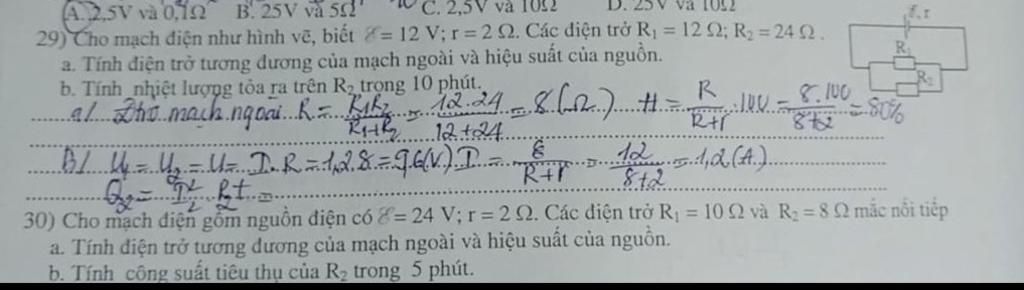 A. 2,5V và 0,1Ω B. 25V và 5Ω C. 2,5V và 10Ω D. 25V và 10Ω
29) Cho mạch điện như hình vẽ, biết ℰ = 12 V; r = 2 Ω. Các điện trở R₁ = 12 Ω; R₂ = 24 Ω.
ℰ, r
R₁
R₂
a. Tính điện trở tương đương của mạch ngoài và hiệu suất của nguồn.
b. Tính nhiệt lượng tỏa ra trên R₂ trong 10 phút.
a/ mạch ngoài R = R₁R₂/R₁+R₂ = 12.24/12+24 = 8 (Ω) H = R/R+r .100 = 8.100/8+2 = 80%
B/ U₁ = U₂ = U = I.R = 1,2.8 = 9,6(V) I = ℰ/R+r = 12/8+2 = 1,2(A)
Q₂ = I₂² R₂ t =
30) Cho mạch điện gồm nguồn điện có ℰ = 24 V; r = 2 Ω. Các điện trở R₁ = 10 Ω và R₂ = 8 Ω mắc nối tiếp
a. Tính điện trở tương đương của mạch ngoài và hiệu suất của nguồn.
b. Tính công suất tiêu thụ của R₂ trong 5 phút.